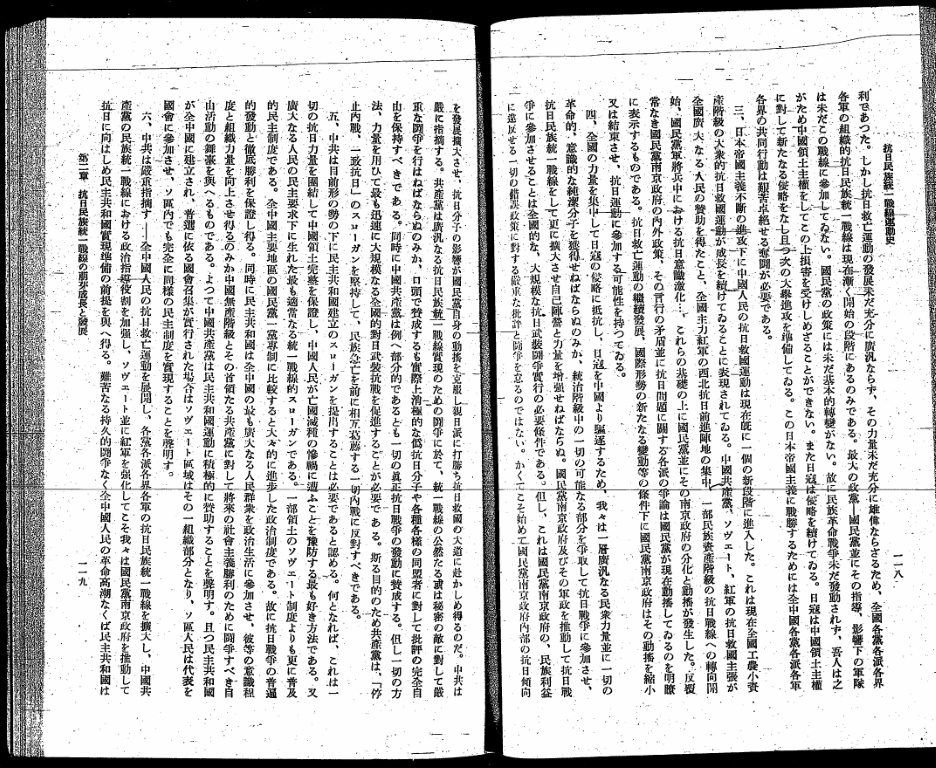 抗日民族統一戰線運動史
一一八
利であつた。しかし抗日救亡運動の發展未だ充分に廣汎ならず、その力量未だ充分に雄偉ならざるため、全國各黨各派各界
各軍の組織的抗日民族統一戰線は現在漸く開始の段階にあるのみである。最大の政黨―國民黨並にその指導、影響下の軍隊
は未だこの戰線に參加してゐない。國民黨の政策には未だ基本的轉變がない。故に民族革命戰爭未だ發動されず、吾人は之
がため中國領土主權をしてこの上損害を受けしめざることができない。また日寇は侵略を續けてゐる。日寇は中國領土主權
に對して新たなる侵略をなし且つ次の大擧進攻を準備してゐる。この日本帝國主義に戰勝するためには全中國各黨各派各軍
各界の共同行動は艱苦卓絕せる奮鬪が必要である。
三、日本帝國主義不斷の進攻下に中國人民の抗日救國運動は現在旣に一個の新段階に進入した。これは現在全國工農小資
產階級の大衆的抗日救國運動が成長を續けてゐることに表現されてゐる。中國共產黨、ソヴェート、紅軍の抗日救國主張が
全國廣大なる人民の贊助を得たこと、全國主力紅軍の西北抗日前進陣地の集中、一部民族資產階級の抗日戰線への轉向開
始、國民黨軍將兵中における抗日意識激化…、これらの基礎の上に國民黨並にその南京政府の分化と動搖が發生した。反覆
常なき國民黨南京政府の內外政策、その言行の矛盾並に抗日問題に關する各派の爭論は國民黨が現在動搖してゐるのを明瞭
に表示するものである。抗日救亡運動の繼續發展、國際形勢の新たなる變動等の條件下に國民黨南京政府はその動搖を縮小
又は結束させ、抗日運動に參加する可能性を持つてゐる。
四、全國の力量を集中して日寇の侵略に抵抗し、日寇を中國より驅逐するため、我々は一層廣汎なる民衆力量並に一切の
革命的、意識的な純潔分子を獲得せねばならぬのみか、統治階級中の一切の可能なる部分を爭取して抗日戰爭に參加させ、
抗日民族統一戰線をして更に擴大させ自己陣營と力量を增强せねばならぬ。國民黨南京政府及びその軍政を推動して抗日戰
爭に參加させることは全國的な、大規模な抗日武裝鬪爭實行の必要條件である。但し、これは國民黨南京政府の、民族利益
に違反せる一切の錯誤政策に對する嚴重な批評と鬪爭を怠るのではない。かくてこそ始めて國民黨南京政府內部の抗日傾向
を發展擴大させ、抗日分子の影響が國民黨自身の動搖を克服し親日派に打勝ち抗日救國の大道に赴かしめ得るのだ。中共は
嚴に指摘する。共產黨は廣汎なる抗日民族統一戰線實現のための鬪爭に於て、統一戰線の公然たる或は秘密の敵に對して嚴
重な鬪爭を行はねばならぬのみか、口頭で贊成するも實際上消極的な僞抗日分子や各種各樣の同盟者に對して批評の完全自
由を保持すべきである。同時に中國共產黨は例へ部分的であるとも一切の眞正抗日戰爭の發動に贊成する。但し一切の方
法、力量を用ひて最も迅速に大規模なる全國的對日武裝抗戰を促進することが必要である。斯る目的のため共產黨は、「停
止內戰、一致抗日」のスローガンを堅持して、民族危亡を前に相互葛藤する一切內戰に反對すべきである。
五、中共は目前形勢の下に民主共和國建立のスローガンを提出することは必要であると認める。何となれば、これは一
切の抗日力量を團結して中國領土完整を保證し、中國人民が亡國滅種の慘禍に遭ふことを豫防する最も好き方法である。又
廣大なる人民の民主要求下に生れた最も適當なる統一戰線的スローガンである。一部領土のソヴェート制度よりも更に普及
的民主制度である。全中國主要地區の國民黨一黨專制に比較すると大々的に進步した政治制度である。故に抗日戰爭の普遍
的發動と徹底勝利を保證し得る。同時に民主共和國は全中國の最も廣大なる人民群衆を政治生活に參加させ、彼等の意識程
度と組織力量を向上させ得るのみか中國無產階級とその首領たる共產黨に對して將來の社會主義勝利のために鬪爭すべき自
由活動の舞臺を與へるものである。よつて中國共產黨は民主共和國運動に積極的に贊助することを聲明す。且つ民主共和國
が全中國に建立され、普選に依る國會召集が實行された場合はソヴェート區域はその一組織部分となり、ソ區人民は代表を
國會に參加させ、ソ區內でも完全に同樣の民主制度を實現することを聲明す。
六、中共は嚴重指摘す――全中國人民の抗日救亡運動を展開し、各黨各派各界各軍の抗日民族統一戰線を擴大し、中國共
產黨の民族統一戰線における政治指導役割を加强し、ソヴェート並に紅軍を强化してこそ我々は國民黨南京政府を推動して
抗日に向はしめ民主共和國實現準備の前提を與へ得る。難苦なる持久的鬪爭なく全中國人民の革命高潮なくば民主共和國は
第二章　抗日民族統一戰線の萠芽成長と發展
一一九